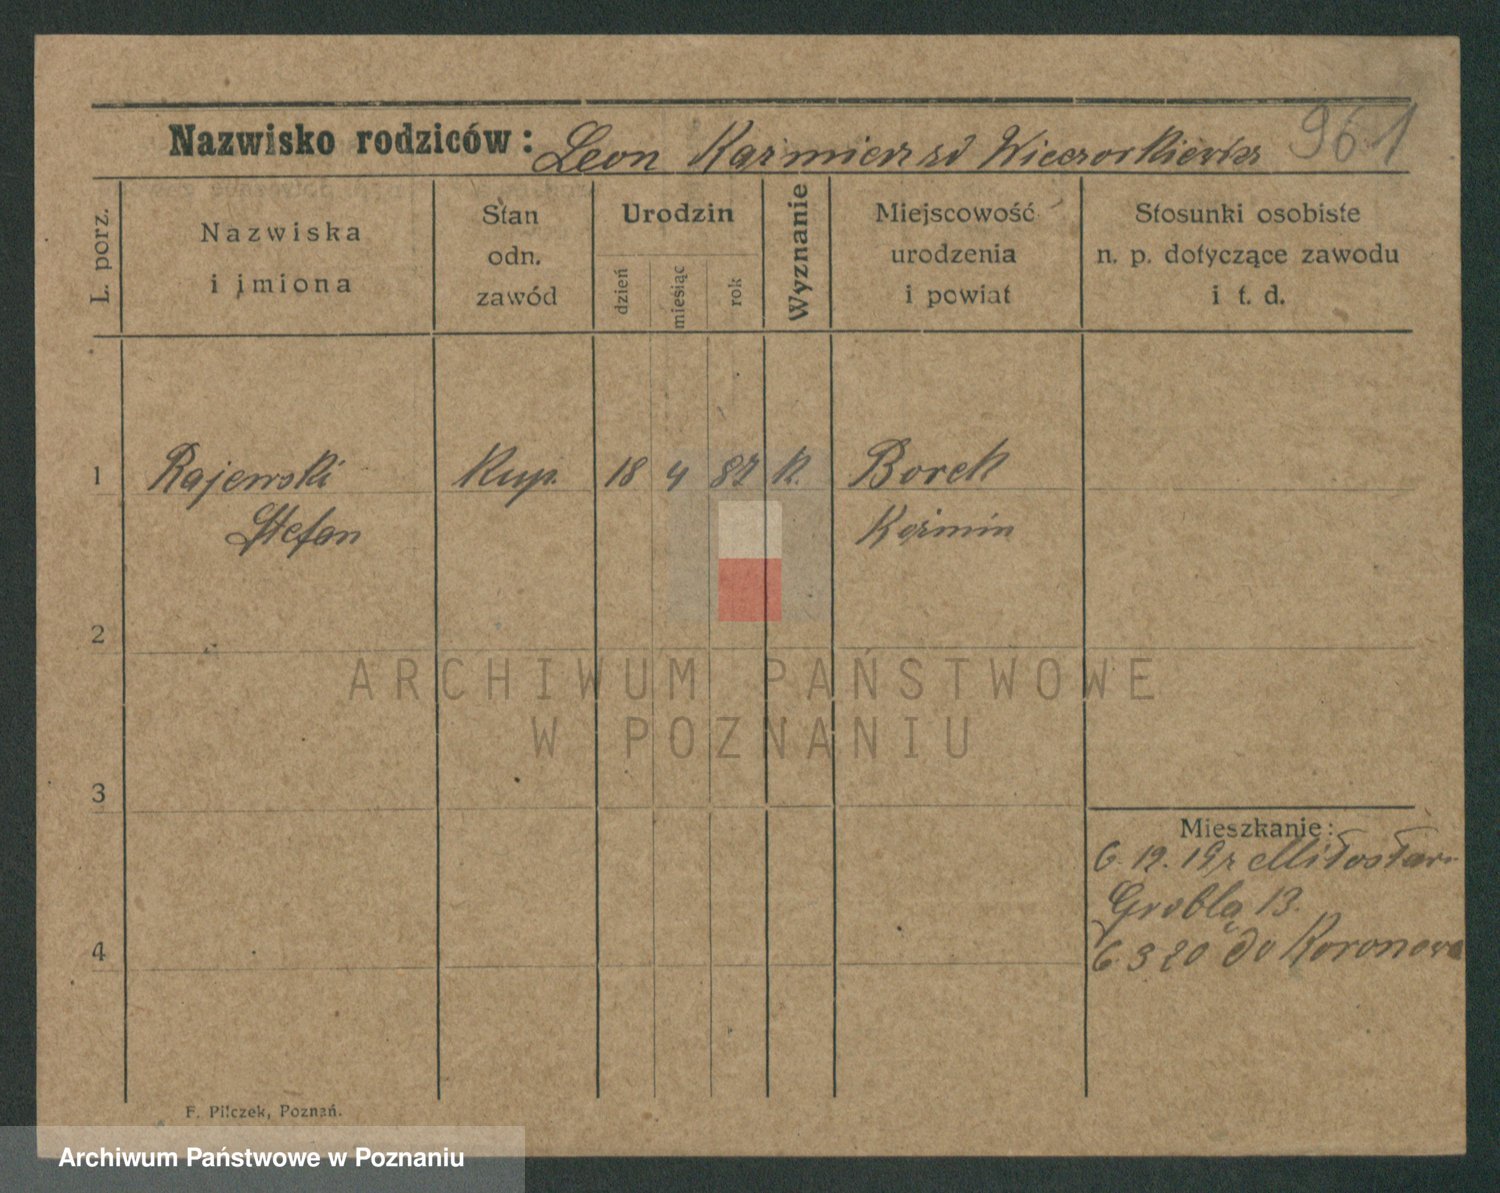 961
Nazwisko rodziców: Leon Kazmiera zd Wieczorkiewicz
L. porz.
Nazwiska
i imiona
Stan
odn.
zawód
Urodzin
dzień
miesiąc
rok
Wyznanie
Miejscowość
urodzenia
i powiat
Stosunki osobiste
n. p. dotyczące zawodu
i t. d.
1 Rajewski Kup. 18 4 87 K. Borek
Stefan Koźmin
2
ARCHIWUM PAŃSTWOWE
W POZNANIU
3
Mieszkanie:
6. 12. 19 z Miłosław
Groblą 13.
4
6 3 20 do Koronowa
F. Pilczek, Poznań.
Archiwum Państwowe w Poznaniu